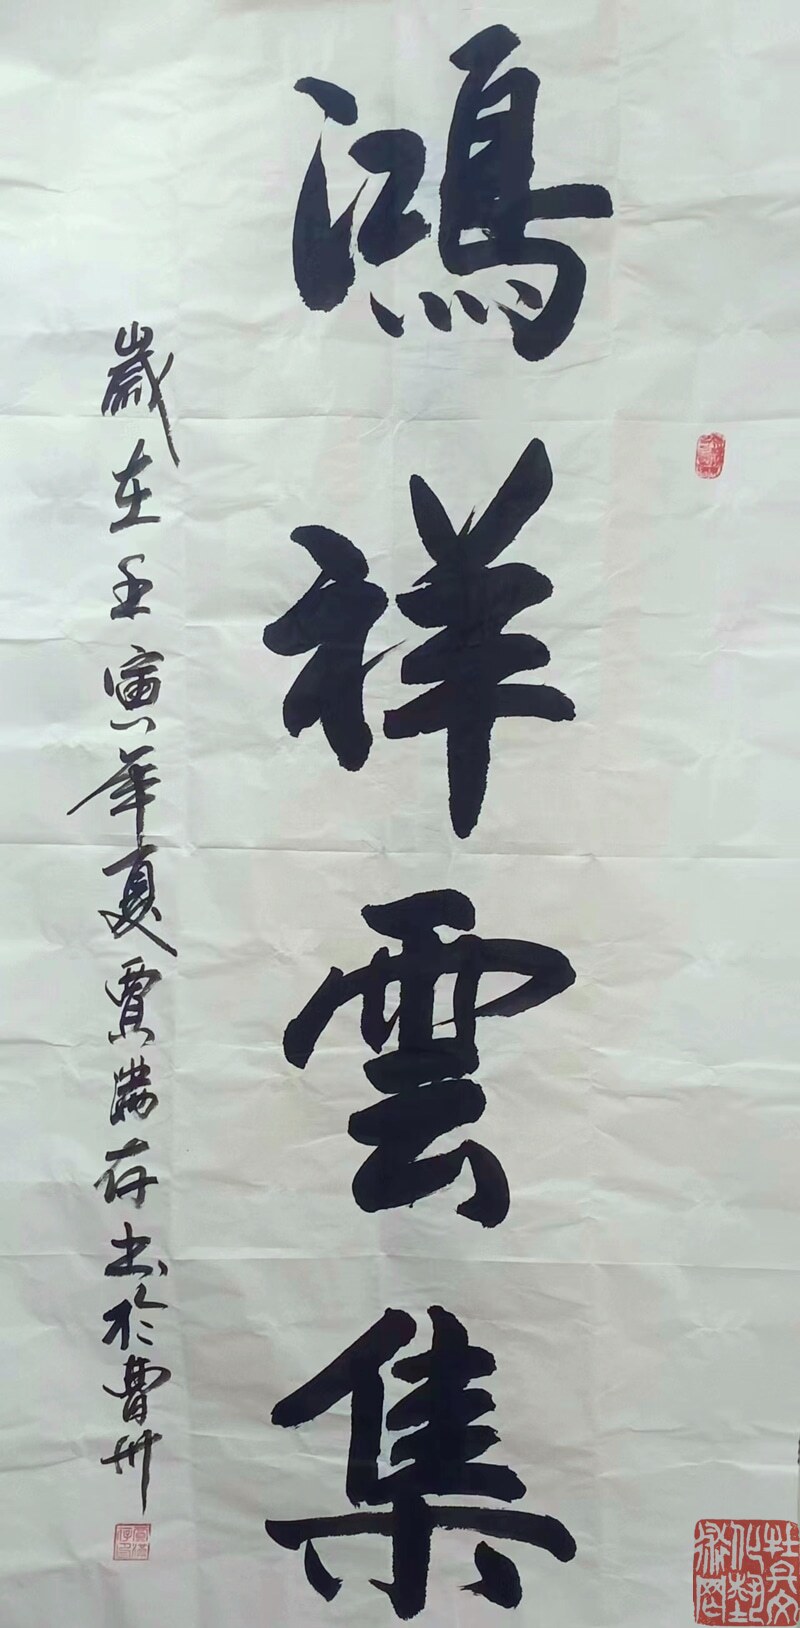 鴻祥雲集
歲在壬寅年夏賈満存书於曹州